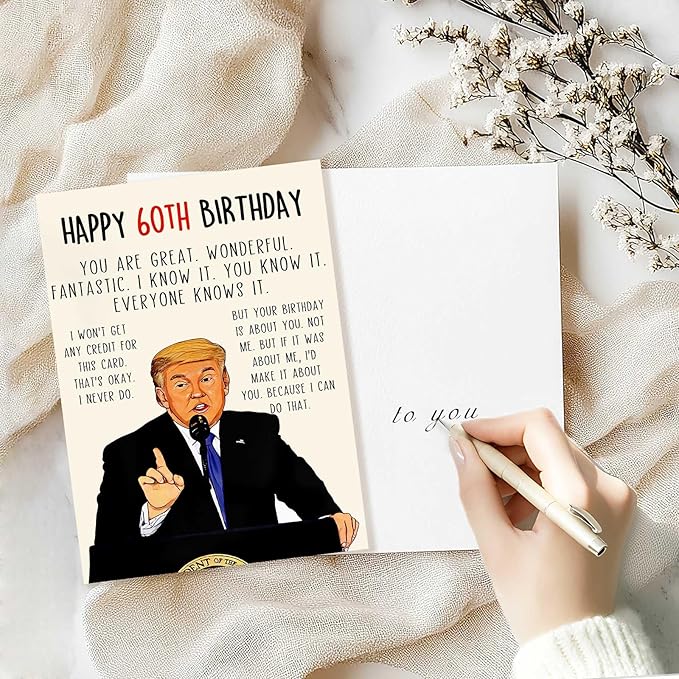 HAPPY 60TH BIRTHDAY
YOU ARE GREAT. WONDERFUL.
FANTASTIC. I KNOW IT. YOU KNOW IT.
EVERYONE KNOWS IT.
I WON'T GET
ANY CREDIT FOR
THIS CARD.
THAT'S OKAY.
I NEVER DO.
BUT YOUR BIRTHDAY
IS ABOUT YOU. NOT
ME. BUT IF IT WAS
ABOUT ME, I'D
MAKE IT ABOUT
YOU. BECAUSE I CAN
DO THAT.
ENT OF THE
to you